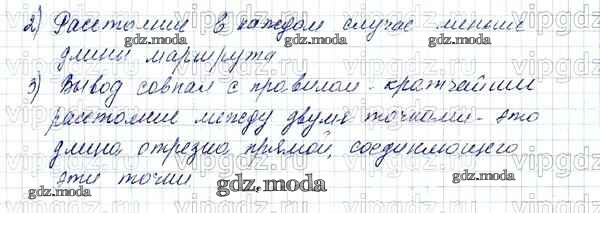 2) Расстояние в каждом случае меньше
длины маршрута
3) Вывод совпал с правилом - кратчайшие
расстояние между двумя точками - это
длина отрезка прямой, соединяющего
эти точки
gdz.moda
gdz.moda
gdz.moda
gdz.moda
gdz.moda
gdz.moda
vipgdz
vipgdz
vipgdz
vipgdz